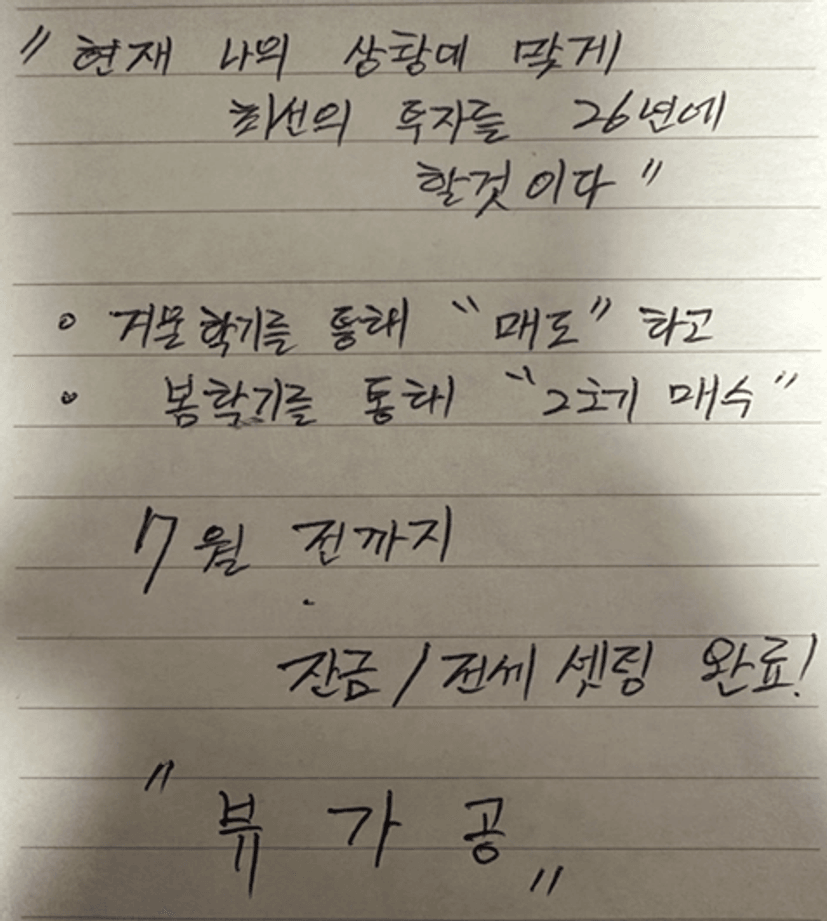 " 현재 나의 상황에 맞게
최선의 투자를 26년에
할것이다 "
○ 겨울학기를 통해 "매도" 하고
○ 봄학기를 통해 "2호기 매수"
7월 전까지
잔금 / 전세 셋팅 완료!
" 뷰 가 공 "